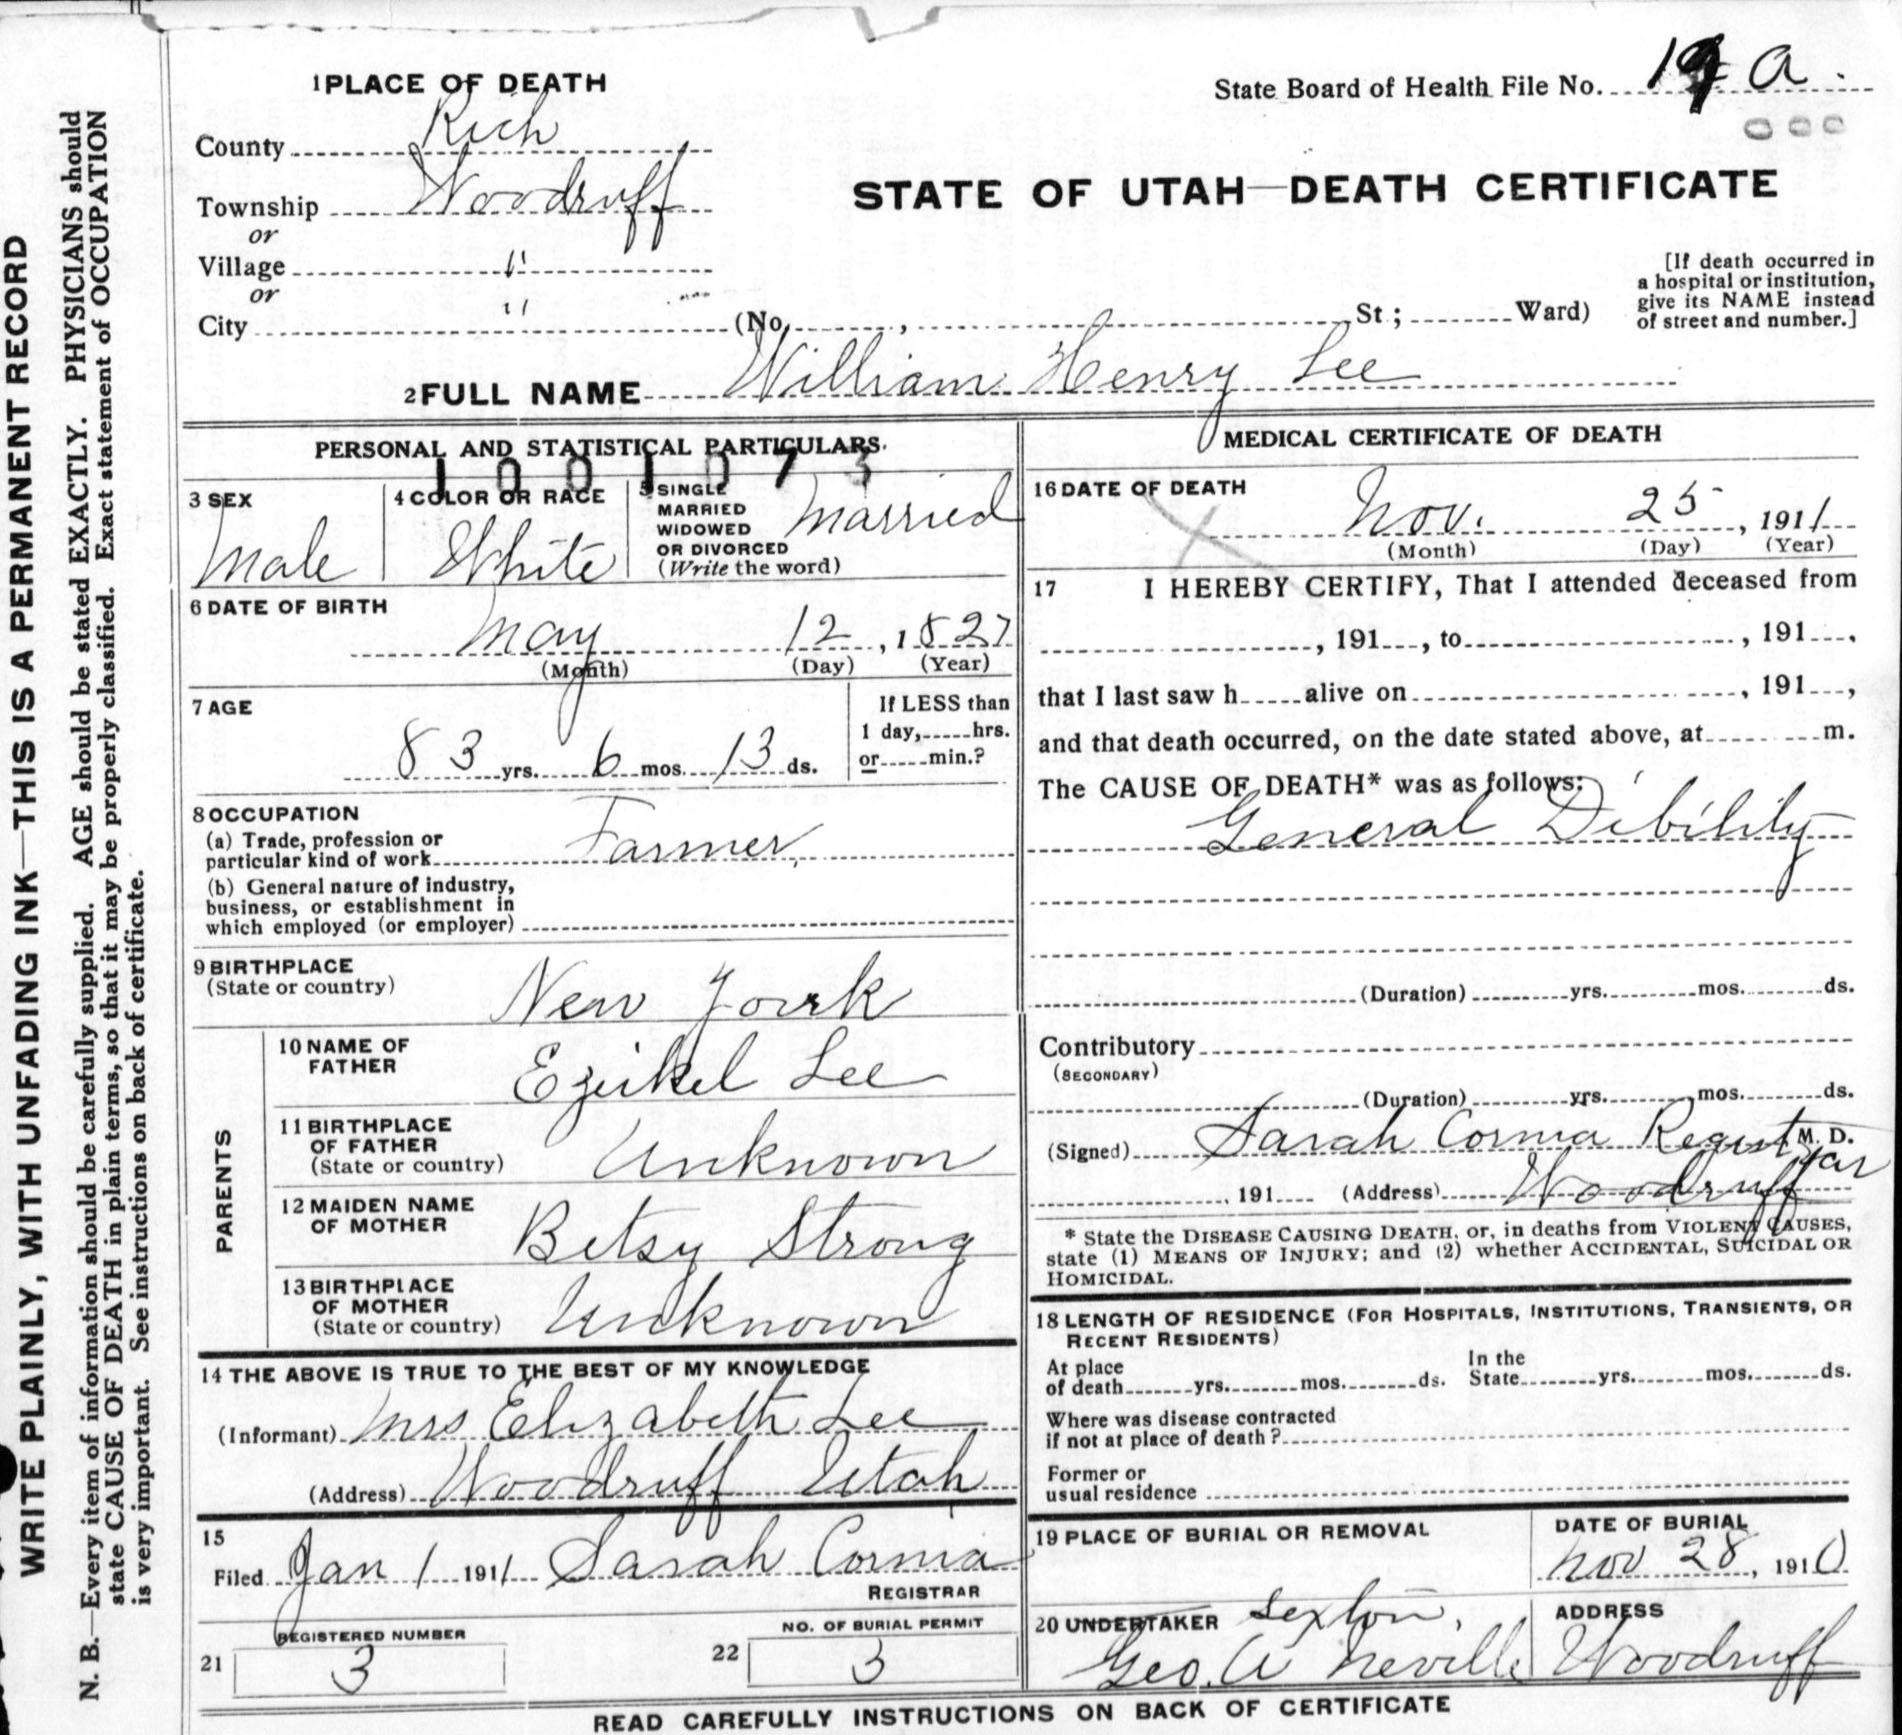 1 PLACE OF DEATH
State Board of Health File No. 19 a.
County Rich
Township Woodruff
or
Village "
or
City "
STATE OF UTAH—DEATH CERTIFICATE
(No. , St; Ward)
[If death occurred in
a hospital or institution,
give its NAME instead
of street and number.]
2 FULL NAME William Henry Lee
PERSONAL AND STATISTICAL PARTICULARS.
1001073
3 SEX
Male
4 COLOR OR RACE
White
5 SINGLE
MARRIED
WIDOWED
OR DIVORCED
(Write the word)
Married
6 DATE OF BIRTH
May 12, 1827
(Month) (Day) (Year)
7 AGE
83 yrs. 6 mos. 13 ds.
If LESS than
1 day, hrs.
or min.?
8 OCCUPATION
(a) Trade, profession or
particular kind of work Farmer,
(b) General nature of industry,
business, or establishment in
which employed (or employer)
9 BIRTHPLACE
(State or country)
New Yourk
PARENTS
10 NAME OF
FATHER
Ezeikel Lee
11 BIRTHPLACE
OF FATHER
(State or country)
Unknown
12 MAIDEN NAME
OF MOTHER
Betsy Strong
13 BIRTHPLACE
OF MOTHER
(State or country)
Unknown
14 THE ABOVE IS TRUE TO THE BEST OF MY KNOWLEDGE
(Informant) Mrs Elizabeth Lee
(Address) Woodruff Utah
15
Filed Jan 1 1911 Sarah Cornia
REGISTRAR
REGISTERED NUMBER
21 3
NO. OF BURIAL PERMIT
22 3
MEDICAL CERTIFICATE OF DEATH
16 DATE OF DEATH
Nov. 25, 1911
(Month) (Day) (Year)
17 I HEREBY CERTIFY, That I attended deceased from
, 191 , to , 191 ,
that I last saw h alive on , 191 ,
and that death occurred, on the date stated above, at m.
The CAUSE OF DEATH* was as follows:
General Dibility
(Duration) yrs. mos. ds.
Contributory
(SECONDARY)
(Duration) yrs. mos. ds.
(Signed) Sarah Cornia Registrar M. D.
, 191 (Address) Woodruff
* State the DISEASE CAUSING DEATH, or, in deaths from VIOLENT CAUSES,
state (1) MEANS OF INJURY; and (2) whether ACCIDENTAL, SUICIDAL OR
HOMICIDAL.
18 LENGTH OF RESIDENCE (FOR HOSPITALS, INSTITUTIONS, TRANSIENTS, OR
RECENT RESIDENTS)
At place
of death yrs. mos. ds.
In the
State yrs. mos. ds.
Where was disease contracted
if not at place of death?
Former or
usual residence
19 PLACE OF BURIAL OR REMOVAL
DATE OF BURIAL
Nov 28, 1910
20 UNDERTAKER Sexton,
Geo. A Neville
ADDRESS
Woodruff
READ CAREFULLY INSTRUCTIONS ON BACK OF CERTIFICATE
WRITE PLAINLY, WITH UNFADING INK—THIS IS A PERMANENT RECORD
N. B.—Every item of information should be carefully supplied. AGE should be stated EXACTLY. PHYSICIANS should
state CAUSE OF DEATH in plain terms, so that it may be properly classified. Exact statement of OCCUPATION
is very important. See instructions on back of certificate.